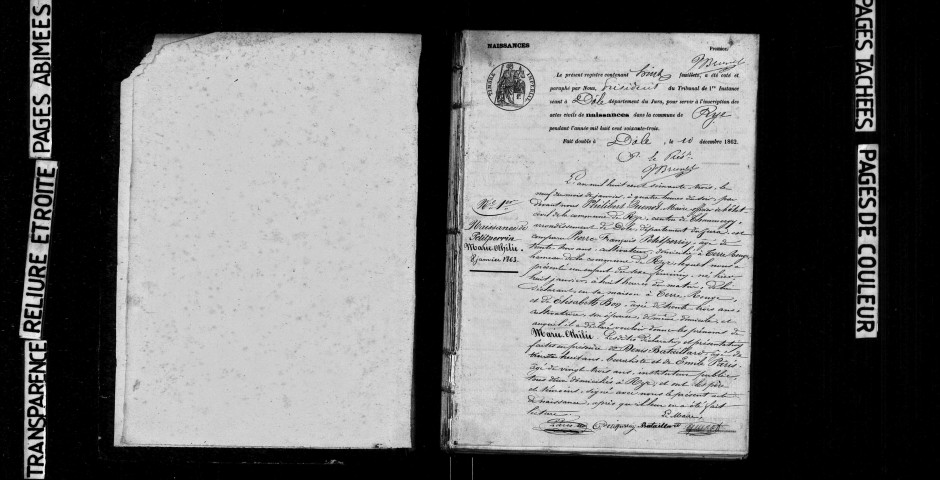 TRANSPARENCE
RELIURE ETROITE
PAGES ABIMEES
NAISSANCES
Premier
TIMBRE IMPERIAL
Le présent registre contenant feuillets, a été coté et
paraphé par Nous, Président du Tribunal de 1re Instance
séant à Dôle département du Jura, pour servir à l'inscription des
actes civils de naissances dans la commune de Rye
pendant l'année mil huit cent soixante-trois.
Fait double à Dôle, le 10 décembre 1862.
L'an mil huit cent soixante trois, le
neuf du mois de janvier, à quatre heures du soir, par
devant nous Philibert Maire officier de l'état
civil de la commune de Rye, canton de Chaumergy,
arrondissement de Dole, département du Jura, est
comparu Pierre François Petitperrin, âgé de
trente trois ans, cultivateur, domicilié à Terre Rouge,
hameau de la commune de Rye, lequel nous a
présenté un enfant du sexe féminin, né hier
huit janvier, à huit heures du matin, de lui
déclarant, en sa maison à Terre Rouge,
et de Elisabeth âgée de trente trois ans,
cultivatrice, son épouse, et
auquel il a déclaré vouloir donner les prénoms de
Marie Othilie. Lesdites déclaration et présentation
faites en présence de Denis Bataillard, âgé de
trente huit ans, buraliste et de Emile Paris,
âgé de vingt trois ans, instituteur public,
tous deux domiciliés à Rye, et ont les père
et témoins, signé avec nous le présent acte
de naissance, après qu'il leur en a été fait
lecture.
Le Maire,
Paris Bataillard
No 1er
Naissance de
Petitperrin
Marie Othilie.
8 janvier 1863.
PAGES TACHEES
PAGES DE COULEUR